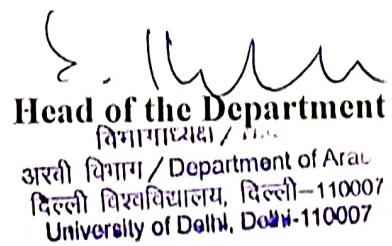 Head of the Department
विभागाध्यक्ष /
अरबी विभाग / Department of
दिल्ली विश्वविद्यालय, दिल्ली–110007
University of Delhi, Delhi-110007